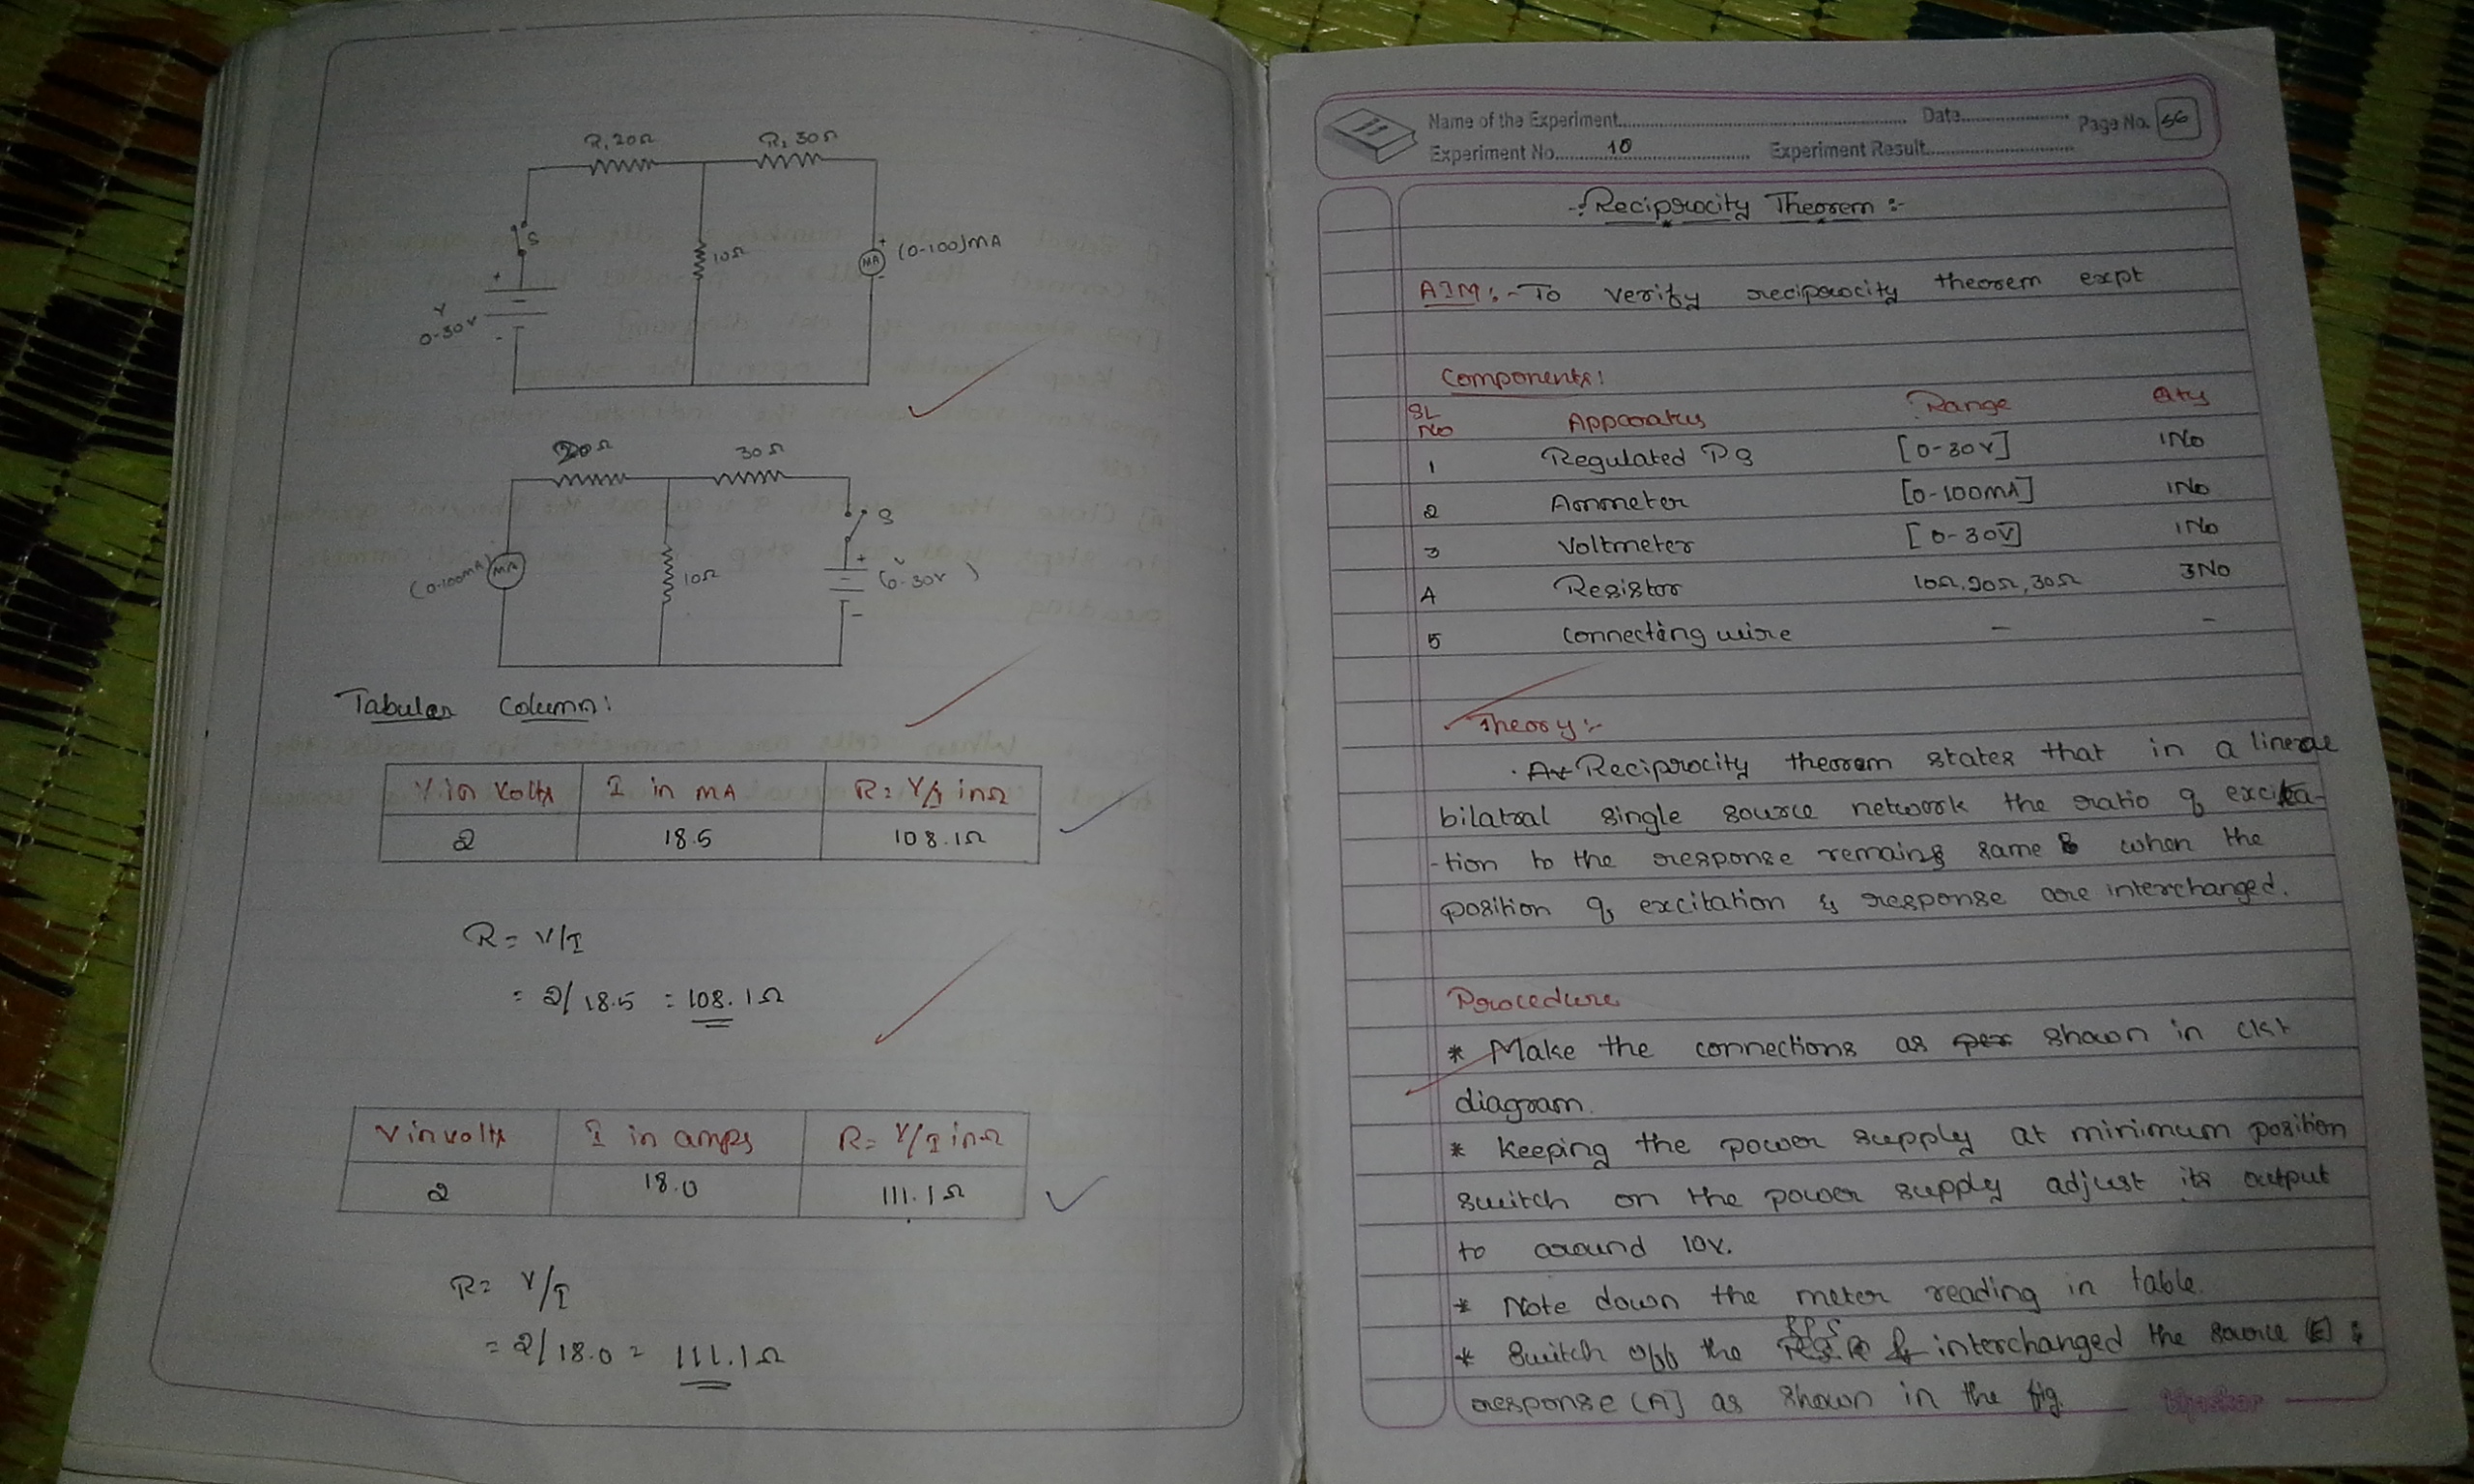 R, 20Ω
R₂ 30Ω
S
10Ω
+
MA
-
(0-100)MA
+
V
0-30V
-
20Ω
30Ω
S
(0-100MA)
MA
10Ω
+
V
(0-30V)
-
Tabular Column:
V in Volts
I in MA
R = V/I in Ω
2
18.5
108.1Ω
R = V/I
= 2/18.5 = 108.1Ω
V in volts
I in amps
R = V/I in Ω
2
18.0
111.1Ω
R = V/I
= 2/18.0 = 111.1Ω
Name of the Experiment
Date
Page No. 56
Experiment No. 10
Experiment Result
-: Reciprocity Theorem :-
AIM:- To verify reciprocity theorem expt
Components:
SL No Apparatus Range Qty
1 Regulated PS [0-30V] 1No
2 Ammeter [0-100mA] 1No
3 Voltmeter [0-30V] 1No
4 Resistor 10Ω, 20Ω, 30Ω 3No
5 connecting wire - -
Theory:-
Reciprocity theorem states that in a linear
bilatral single source network the ratio of excita-
-tion to the response remains same when the
position of excitation & response are interchanged.
Procedure
* Make the connections as per shown in ckt
diagram.
* Keeping the power supply at minimum position
switch on the power supply adjust its output
to around 10V.
* Note down the meter reading in table.
* Switch off the RPS & interchanged the source (E) &
response (A] as shown in the fig.